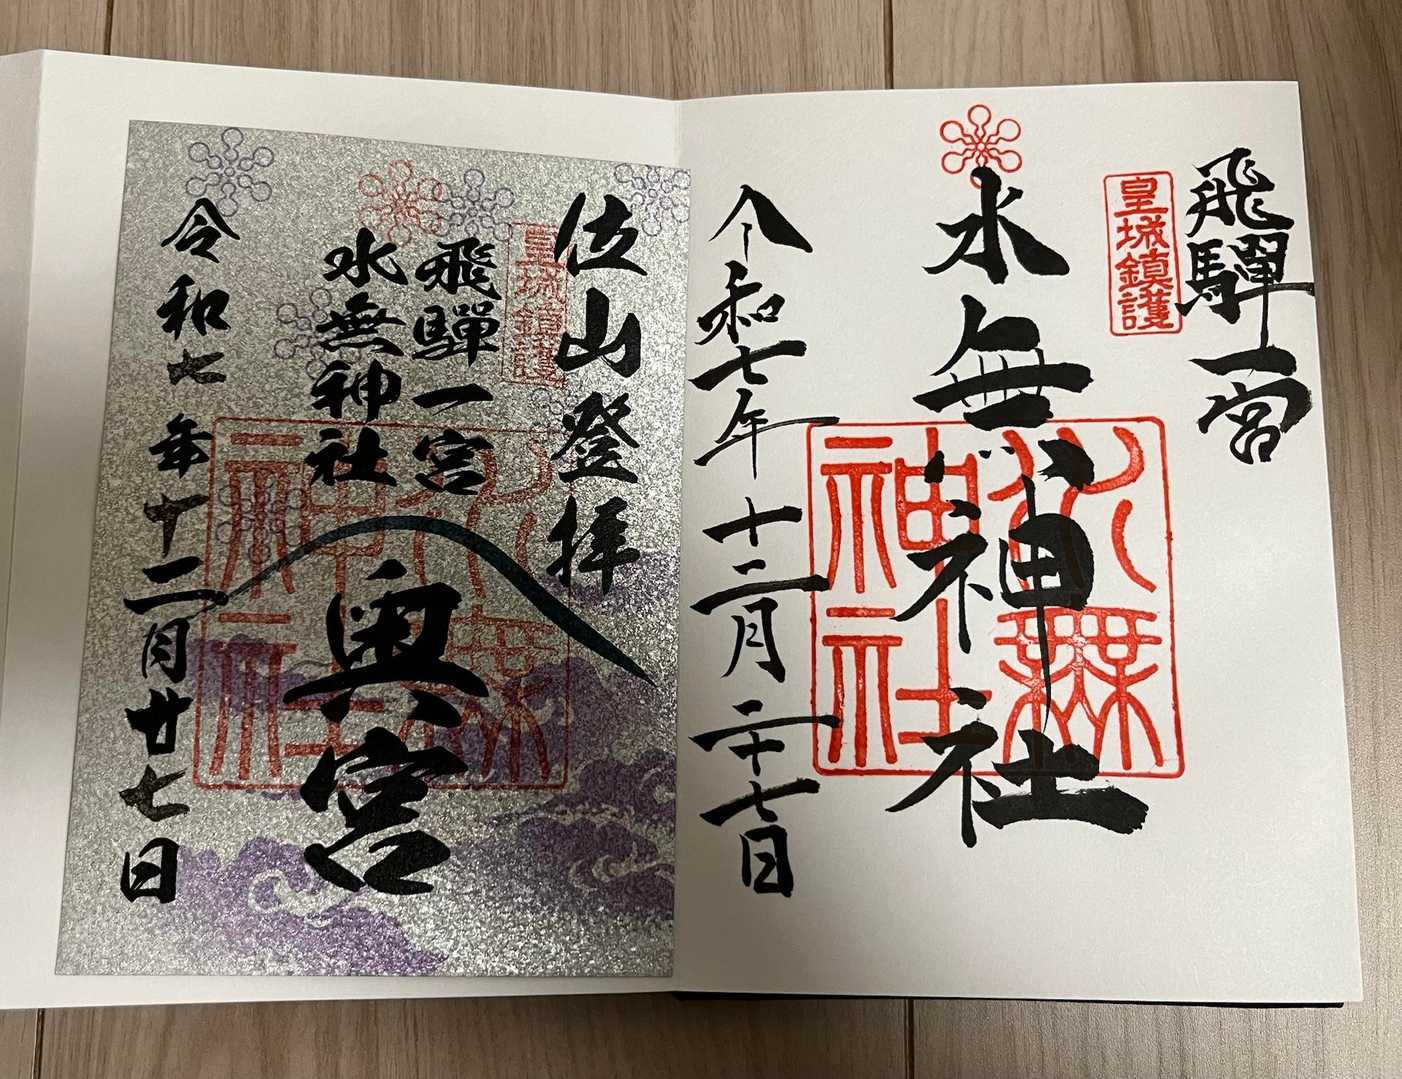 飛驒一宮
皇城鎮護
水無神社
水無神社
令和七年十二月二十七日
位山登拝
皇城鎮護
飛驒一宮
水無神社
奥宮
水無神社
令和七年十二月廿七日